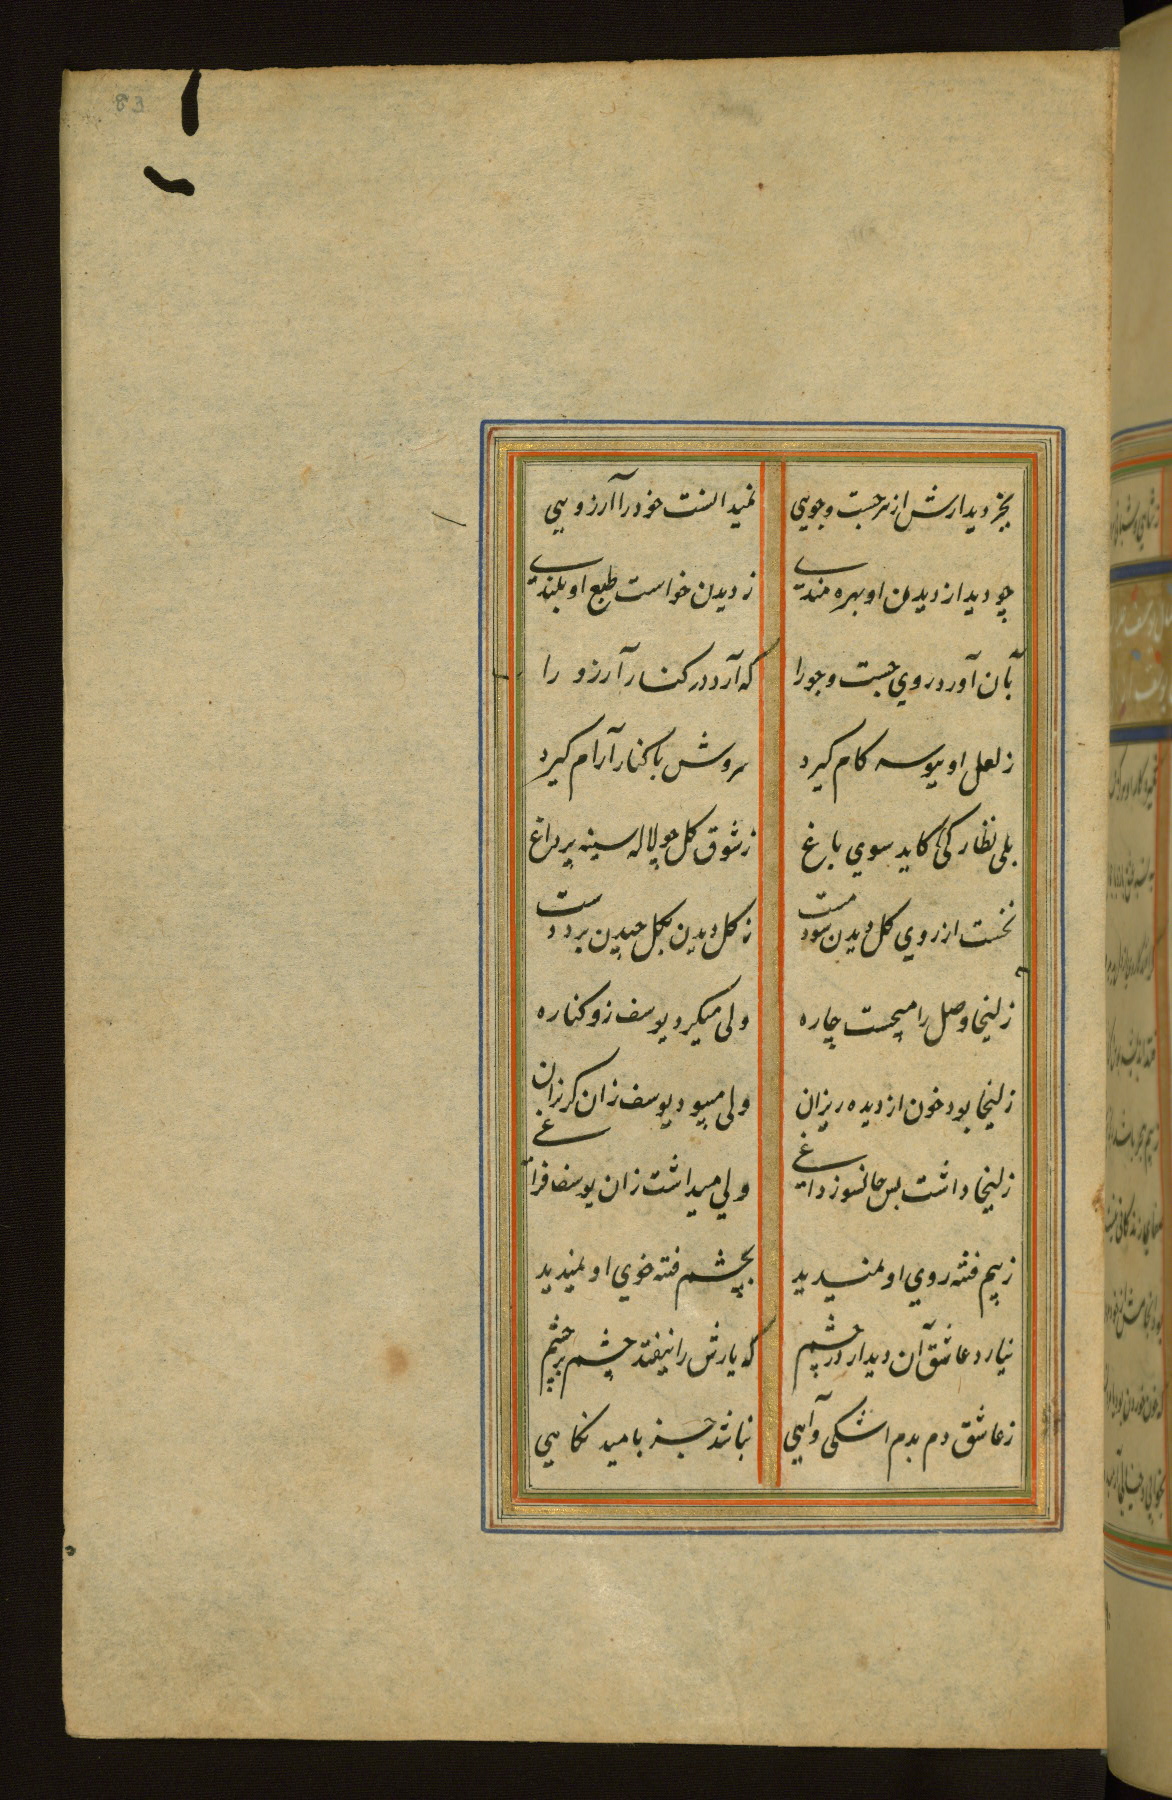 83
بجز دیدارش از هر جست و جویی نمیدانست خود را آرزویی
چو دید از دیدن او بهره مندی ز دیدن خواست طبع او بلندی
بآن آورد روی جست و جو را که آرد در کنار آرزو را
ز لعل او ببوسه کام گیرد ز سروش با کنار آرام گیرد
بلی نظارگی کاید سوی باغ ز شوق گل چو لاله سینه پر داغ
نخست از روی گل دیدن شود مست ز گل دیدن بگل چیدن برد دست
زلیخا وصل را میجست چاره ولی میکرد یوسف زو کناره
زلیخا بود خون از دیده ریزان ولی میبود یوسف زان گریزان
زلیخا داشت بس جانسوز داغی ولی میداشت زان یوسف فراغی
ز بیم فتنه روی او نمیدید بچشم فتنه خوی او نمیدید
نیارد عاشق آن دیدار در چشم که یارش را نیفتد چشم بر چشم
ز عاشق دم بدم اشکی و آهی نباشد جز بامید نگاهی